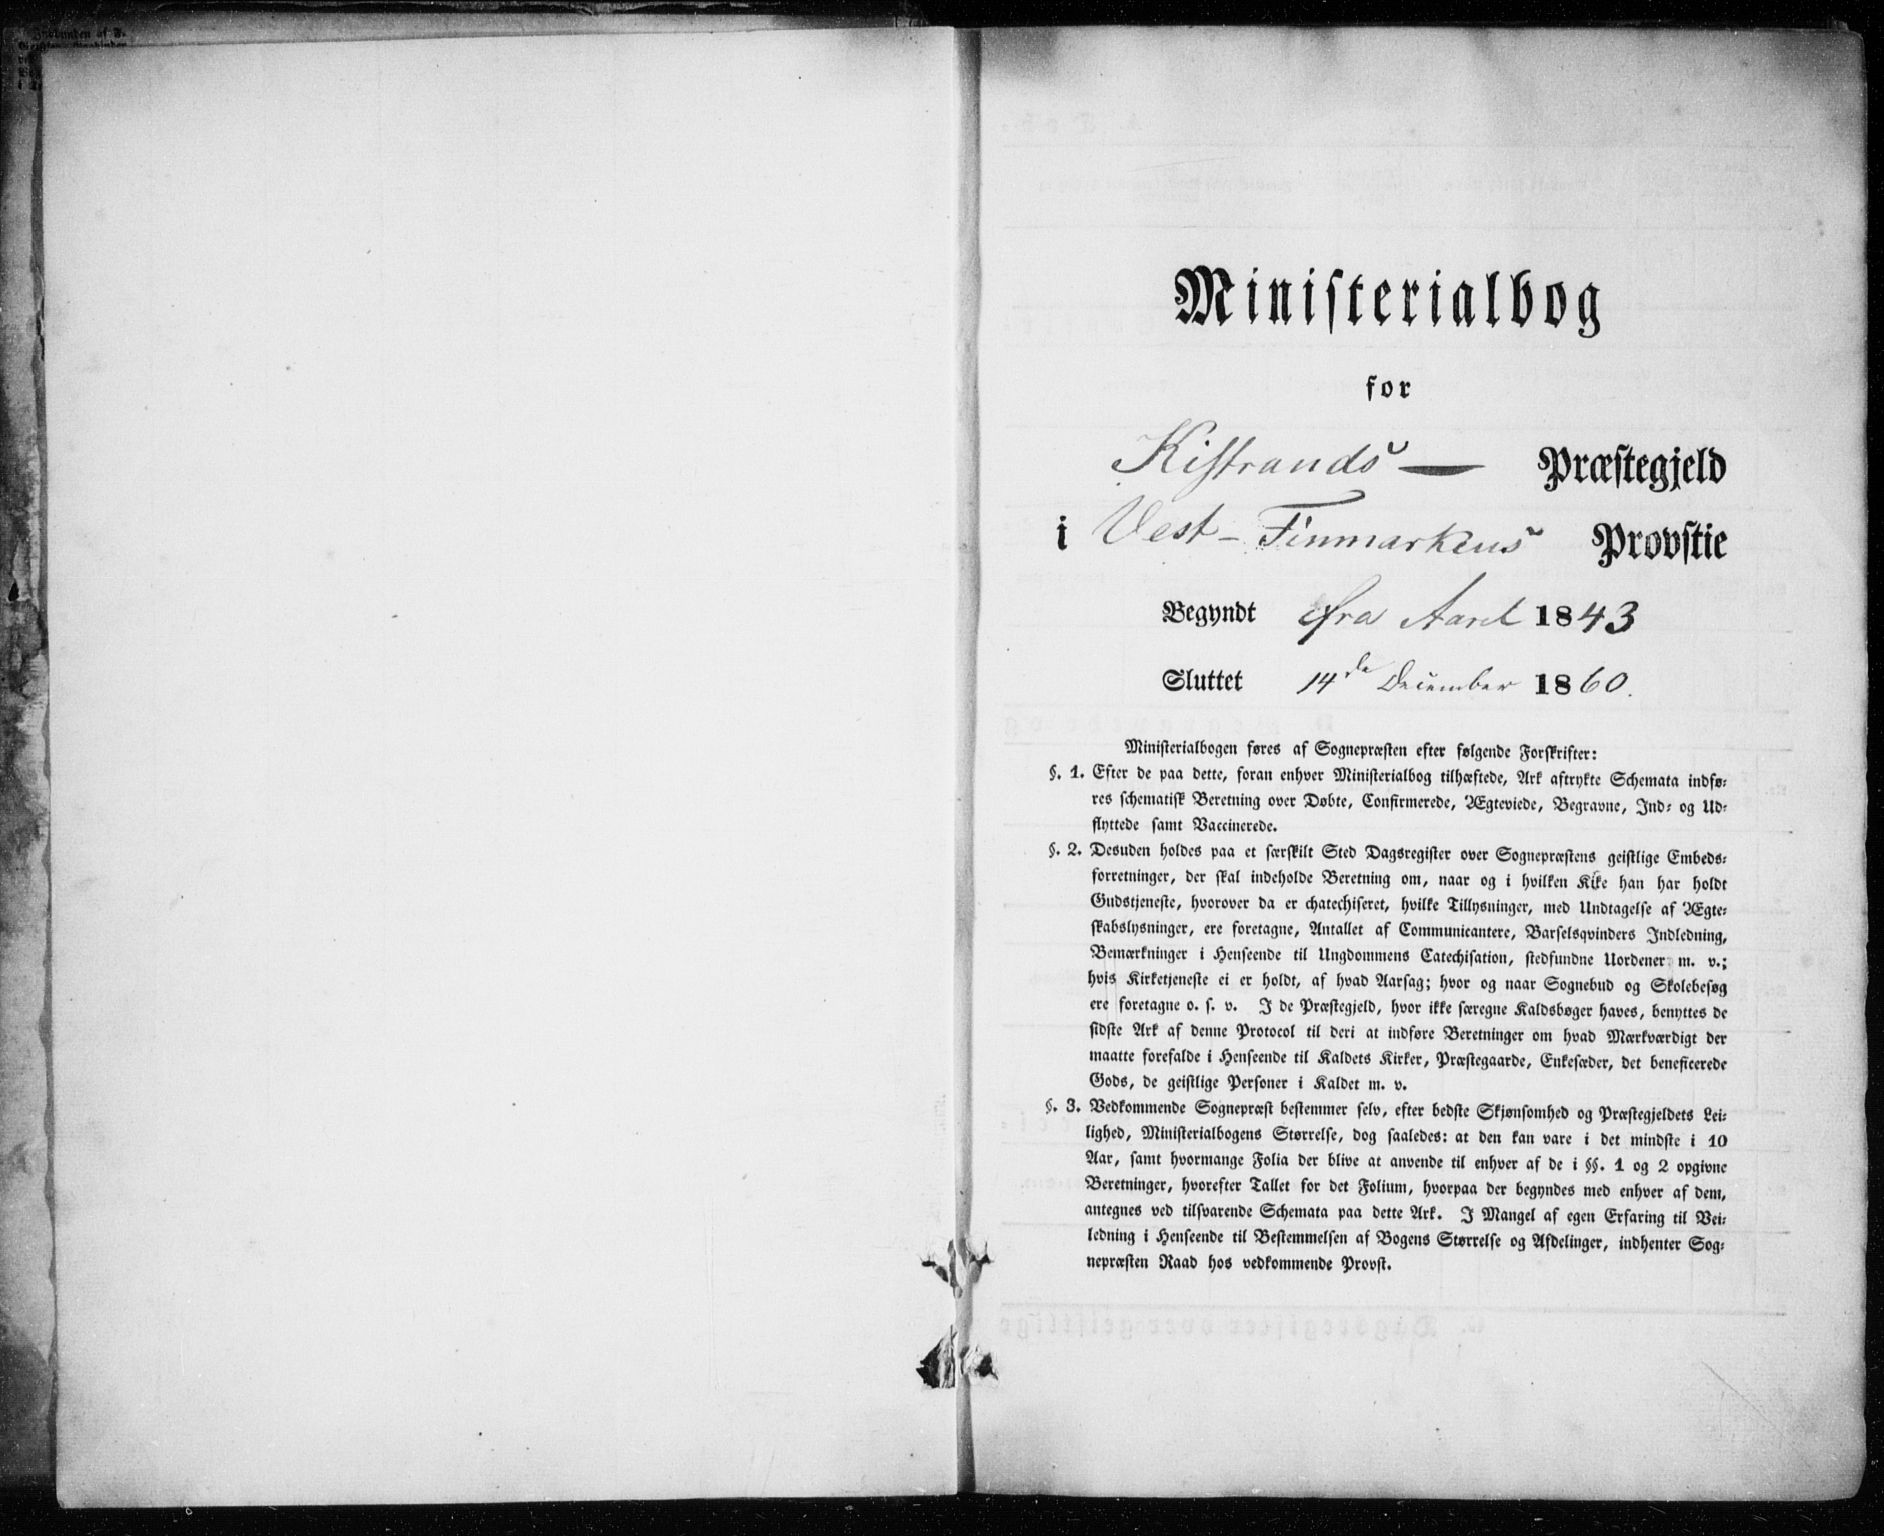 Indbunden af F.
Ministerialbog
for
Kistrands — Præstegjeld
i Vest-Finmarkens Provstie
Begyndt fra Aaret 1843
Sluttet 14de December 1860.
Ministerialbogen føres af Sognepræsten efter følgende Forskrifter:
§. 1. Efter de paa dette, foran enhver Ministerialbog tilhæftede, Ark aftrykte Schemata indfø-
res schematisk Beretning over Døbte, Confirmerede, Ægteviede, Begravne, Ind- og Ud-
flyttede samt Vaccinerede.
§. 2. Desuden holdes paa et særskilt Sted Dagsregister over Sognepræstens geistlige Embeds-
forretninger, der skal indeholde Beretning om, naar og i hvilken Kike han har holdt
Gudstjeneste, hvorover da er chatechiseret, hvilke Tillysninger, med Undtagelse af Ægte-
skabslysninger, ere foretagne, Antallet af Communicantere, Barselsqvinders Indledning,
Bemærkninger i Henseende til Ungdommens Catechisation, stedfundne Uordener m. v.;
hvis Kirketjeneste ei er holdt, af hvad Aarsag; hvor og naar Sognebud og Skolebesøg
ere foretagne o. s. v. I de Præstegjeld, hvor ikke særegne Kaldsbøger haves, benyttes de
sidste Ark af denne Protocol til deri at indføre Beretninger om hvad Mærkværdigt der
maatte forefalde i Henseende til Kaldets Kirker, Præstegaarde, Enkesæder, det beneficerede
Gods, de geistlige Personer i Kaldet m. v.
§. 3. Vedkommende Sognepræst bestemmer selv, efter bedste Skjønsomhed og Præstegjeldets Lei-
lighed, Ministerialbogens Størrelse, dog saaledes: at den kan vare i det mindste i 10
Aar, samt hvormange Folia der blive at anvende til enhver af de i §§. 1 og 2 opgivne
Beretninger, hvorefter Tallet for det Folium, hvorpaa der begyndes med enhver af dem,
antegnes ved tilsvarende Schemata paa dette Ark. I Mangel af egen Erfaring til Vei-
ledning i Henseende til Bestemmelsen af Bogens Størrelse og Afdelinger, indhenter Sog-
nepræsten Raad hos vedkommende Provst.